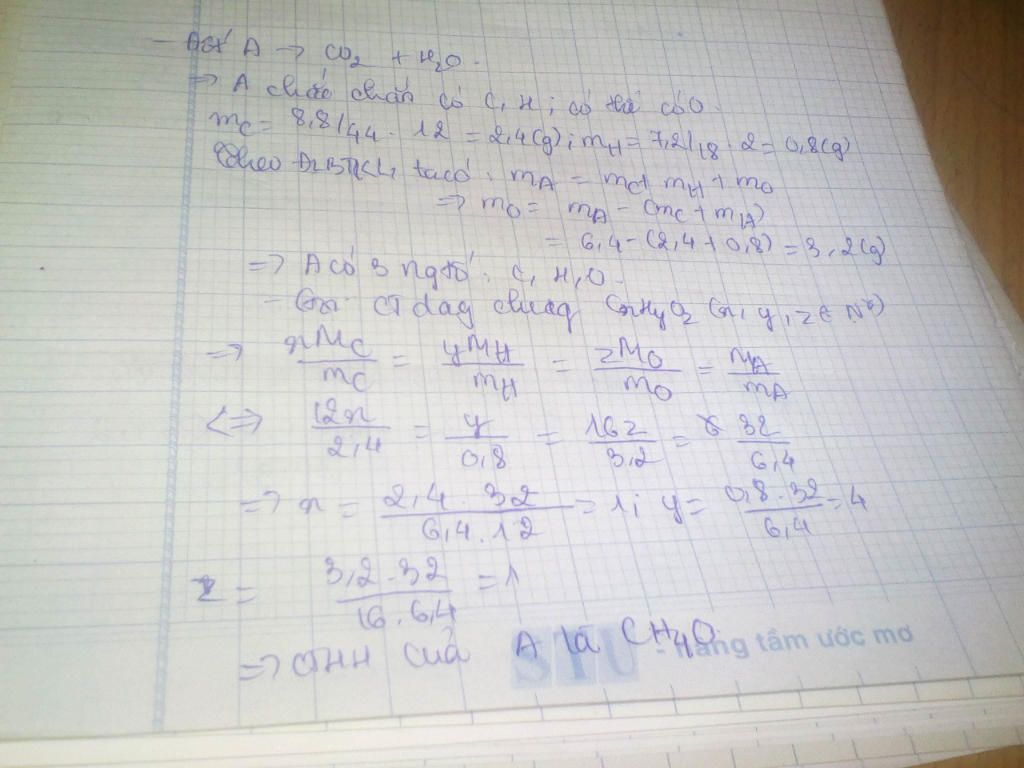 - Đốt A → CO2 + H2O.
⇒ A chắc chắn có C, H; có thể có O.
mC = 8,8/44 . 12 = 2,4(g); mH = 7,2/18 . 2 = 0,8(g)
Theo ĐLBTKL, ta có: mA = mC + mH + mO
⇒ mO = mA - (mC + mH)
= 6,4 - (2,4 + 0,8) = 3,2(g)
⇒ A có 3 ngtố: C, H, O.
- Gọi CT dạg chug CxHyOz (x, y, z ∈ N*)
⇒ xMC/mC = yMH/mH = zMO/mO = MA/mA
<=> 12x/2,4 = y/0,8 = 16z/3,2 = 32/6,4
⇒ x = 2,4 . 32/6,4 . 12 = 1; y = 0,8 . 32/6,4 = 4
z = 3,2 . 32/16 . 6,4 = 1
⇒ CTHH của A là CH4O
STU - nâng tầm ước mơ